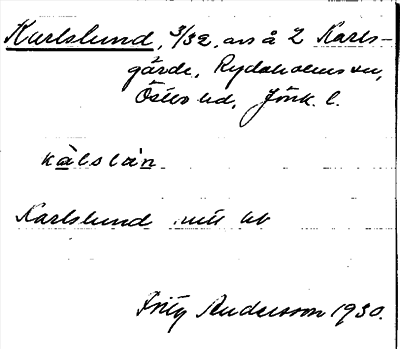 Karlslund, 3/32, avs å 2 Karls-
gärde, Rydaholms sn,
Östbo hd, Jönk. l.
kàlslán
Karlslund
Fritz Andersson 1930.